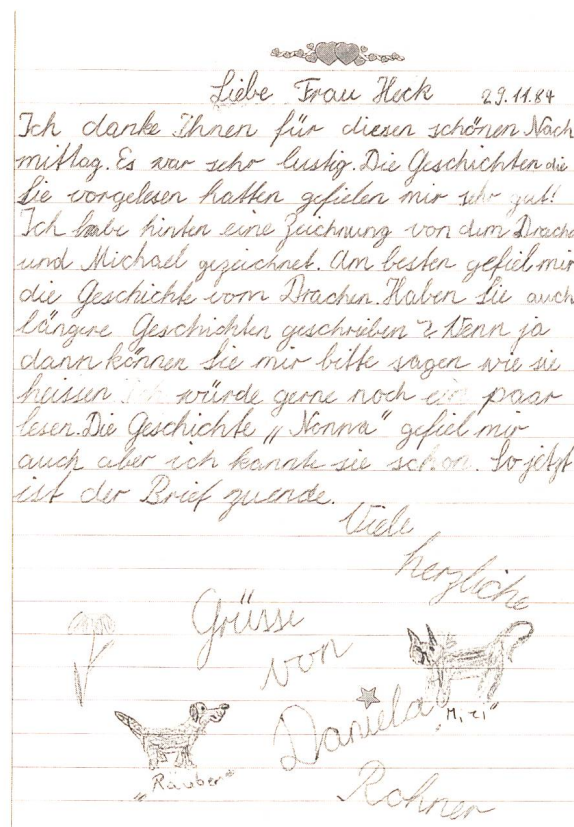 Liebe Frau Heck 29.11.84
Ich danke Ihnen für diesen schönen Nach
mittag. Es war sehr lustig. Die Geschichten die
Sie vorgelesen hatten gefielen mir sehr gut!
Ich habe hinten eine Zeichnung von dem Drache
und Michael gezeichnet. Am besten gefiel mir
die Geschichte vom Drachen. Haben Sie auch
längere Geschichten geschrieben? Wenn ja
dann können Sie mir bitte sagen wie sie
heissen Ich würde gerne noch ein paar
lesen. Die Geschichte „Nonna" gefiel mir
auch aber ich kannte sie schon. So jetzt
ist der Brief zuende.
Viele
herzliche
Grüsse
von
Daniela
Rohner
„Räuber"